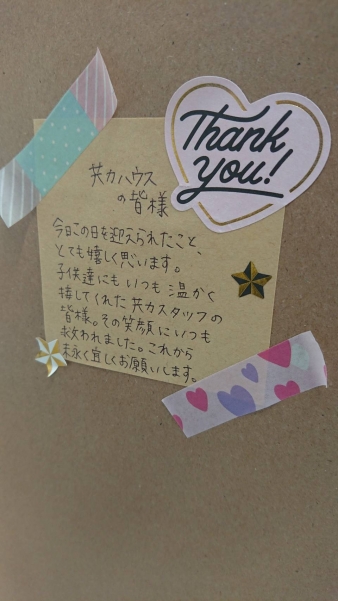 Thank
you!
共力ハウス
の皆様
今日この日を迎えられたこと、
とても嬉しく思います。
子供達にもいつも温かく
接してくれた共力スタッフの
皆様。その笑顔にいつも
救われました。これから
末永く宜しくお願いします。